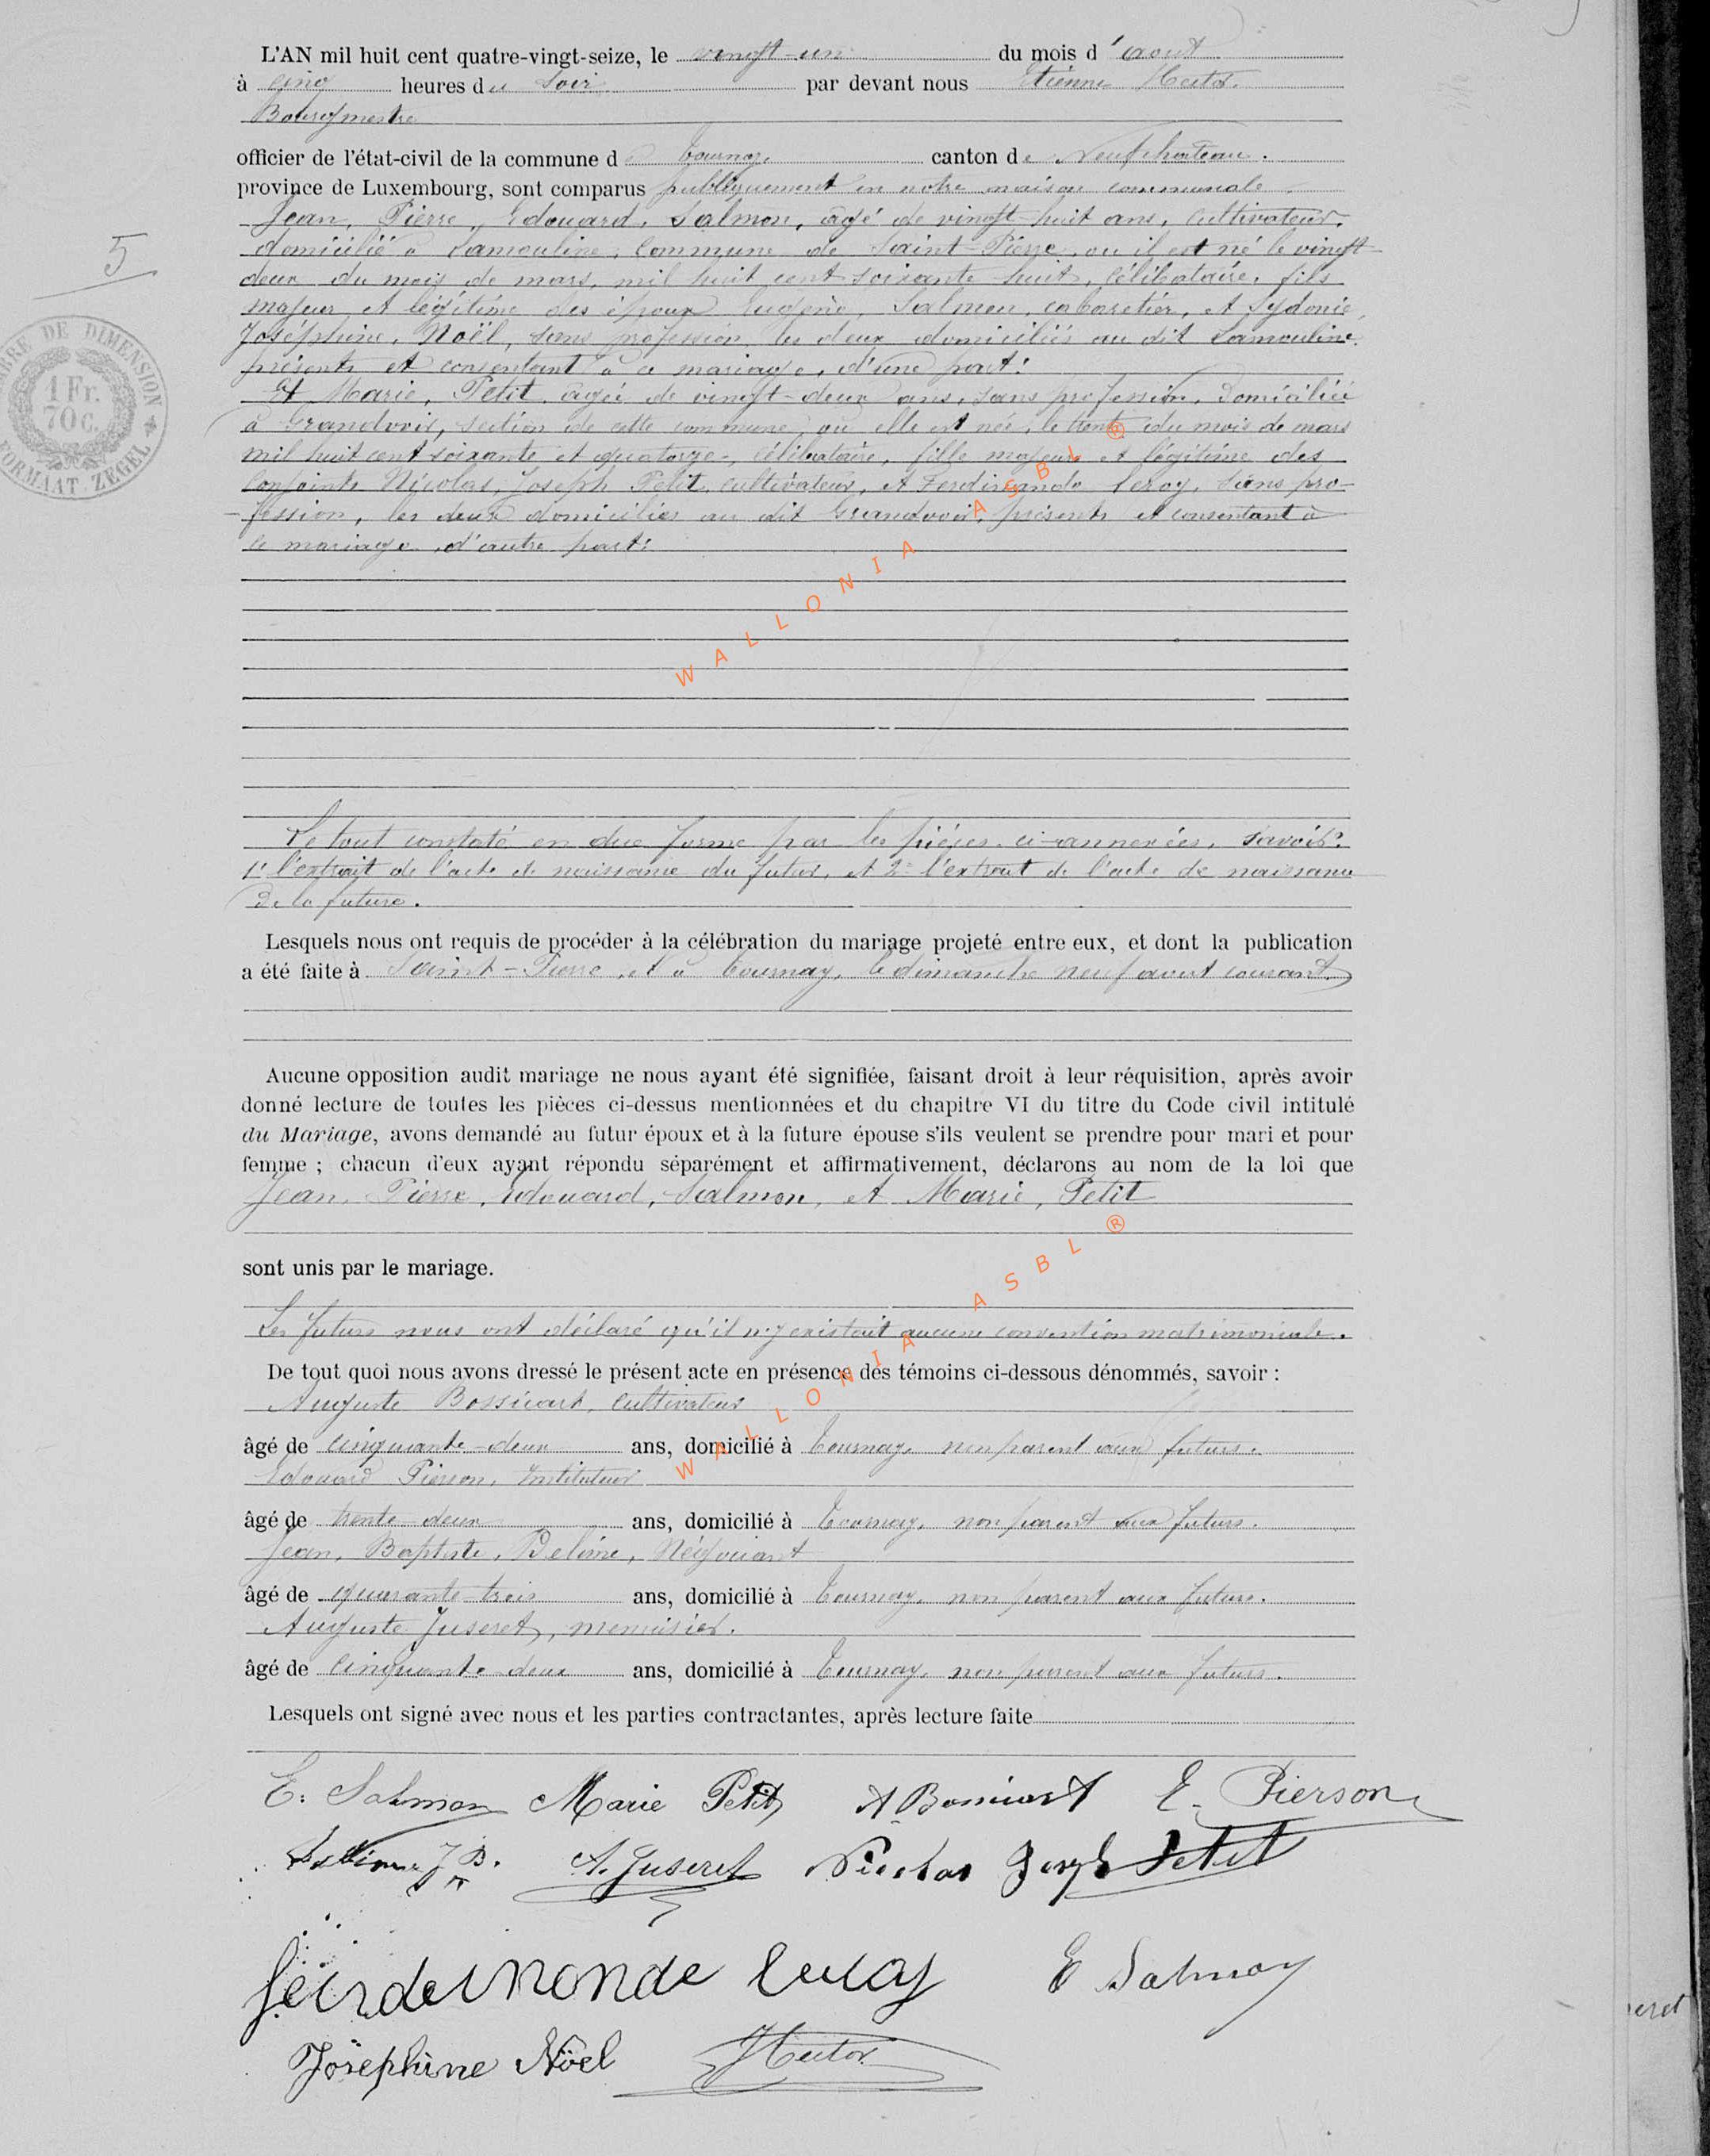 L'AN mil huit cent quatre-vingt-seize, le vingt-un du mois d'août
à cinq heures du soir par devant nous Etienne Hector
Bourgmestre
officier de l'état-civil de la commune de Tournay canton de Neufchâteau.
province de Luxembourg, sont comparus publiquement en notre maison communale
Jean, Pierre, Edouard, Salmon, âgé de vingt-huit ans, cultivateur,
domicilié à Lamouline, commune de Saint-Pierre, où il est né le vingt-
deux du mois de mars, mil huit cent soixante huit, célibataire, fils
majeur et légitime des époux Eugène, Salmon, cabaretier, et Sydonie,
Joséphine, Noël, sans profession, les deux domiciliés au dit Lamouline,
présents et consentant à ce mariage, d'une part:
Et Marie, Petit, agée de vingt-deux ans, sans profession, domiciliée
à Grandvoir, section de cette commune, où elle est née, le trente du mois de mars
mil huit cent soixante et quatorze, célibataire, fille majeure et légitime des
conjoints Nicolas, Joseph Petit, cultivateur, et Ferdinande Leroy, sans pro-
fession, les deux domiciliés au dit Grandvoir, présents et consentant à
ce mariage, d'autre part:
WALLONIA ASBL ®
Le tout constaté en due forme par les pièces ci-annexées, savoir:
1° l'extrait de l'acte de naissance du futur, et 2° l'extrait de l'acte de naissance
de la future.
Lesquels nous ont requis de procéder à la célébration du mariage projeté entre eux, et dont la publication
a été faite à Saint-Pierre, et à Tournay, le dimanche neuf aout courant.
Aucune opposition audit mariage ne nous ayant été signifiée, faisant droit à leur réquisition, après avoir
donné lecture de toutes les pièces ci-dessus mentionnées et du chapitre VI du titre du Code civil intitulé
du Mariage, avons demandé au futur époux et à la future épouse s'ils veulent se prendre pour mari et pour
femme ; chacun d'eux ayant répondu séparément et affirmativement, déclarons au nom de la loi que
Jean, Pierre, Edouard, Salmon, et Marie, Petit
sont unis par le mariage.
Les futurs nous ont déclaré qu'il n'y existait aucune convention matrimoniale.
De tout quoi nous avons dressé le présent acte en présence des témoins ci-dessous dénommés, savoir :
Auguste Bossicart, cultivateur
âgé de cinquante-deux ans, domicilié à Tournay, non parent aux futurs.
Edouard Pierson, Instituteur
âgé de trente-deux ans, domicilié à Tournay, non parent aux futurs.
Jean, Baptiste, Négociant
âgé de quarante-trois ans, domicilié à Tournay, non parent aux futurs.
Auguste Juseret, menuisier.
âgé de cinquante-deux ans, domicilié à Tournay, non parent aux futurs.
Lesquels ont signé avec nous et les parties contractantes, après lecture faite
WALLONIA ASBL ®
E. Salmon Marie Petit A Bossicart E. Pierson
J B. A. Juseret Nicolas Joseph Petit
E Salmon
Joséphine Nöel Hector
5
TIMBRE DE DIMENSION
1 Fr.
70 c.
FORMAAT ZEGEL